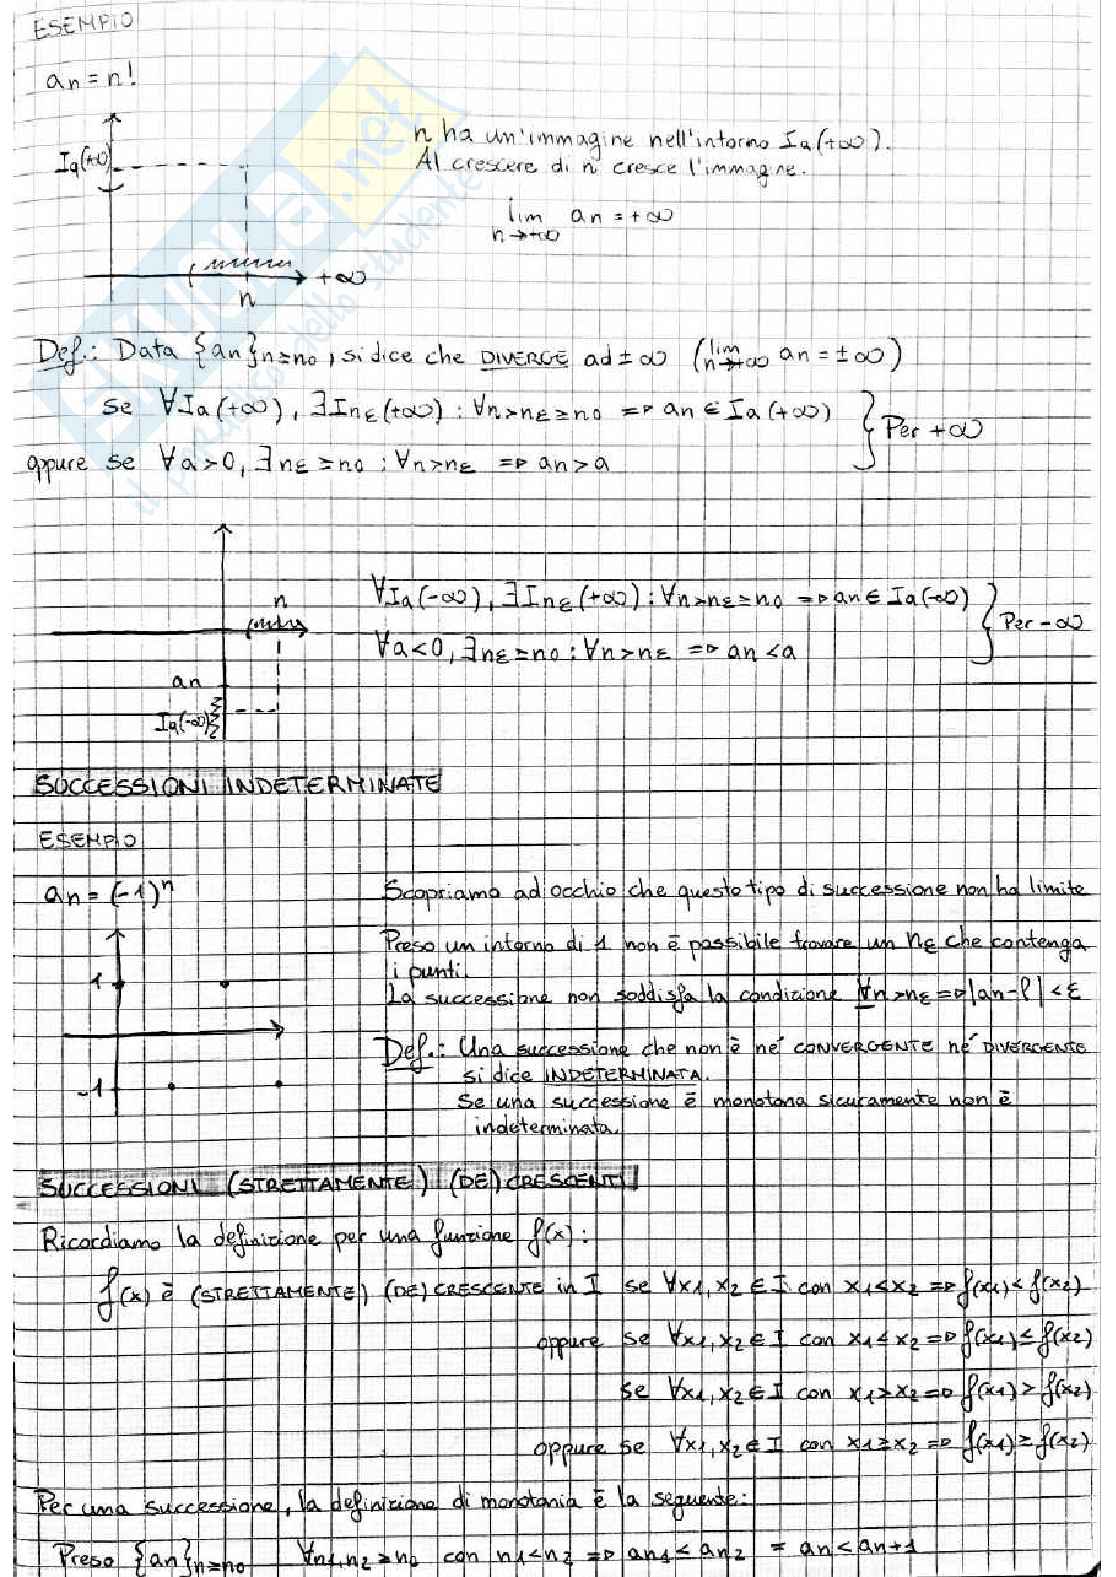 ESEMPIO
an = n!
n ha un'immagine nell'intorno Ia(+∞).
Ia(+∞)
Al crescere di n cresce l'immagine.
lim an = +∞
n→+∞
+∞
n
Def.: Data {an}n≥no, si dice che DIVERGE ad ±∞ (lim n→+∞ an = ±∞)
se ∀Ia(+∞), ∃Inε(+∞) : ∀n>nε≥no => an ∈ Ia(+∞)
Per +∞
oppure se ∀a>0, ∃nε≥no : ∀n>nε => an>a
∀Ia(-∞), ∃Inε(+∞) : ∀n>nε≥no => an ∈ Ia(-∞)
n
Per -∞
∀a<0, ∃nε≥no : ∀n>nε => an<a
an
Ia(-∞)
SUCCESSIONI INDETERMINATE
ESEMPIO
an = (-1)^n
Scopriamo ad occhio che questo tipo di successione non ha limite
Preso un intorno di 1 non è possibile trovare un nε che contenga
i punti.
1
La successione non soddisfa la condizione ∀n>nε => |an-l|<ε
Def.: Una successione che non è né CONVERGENTE né DIVERGENTE
si dice INDETERMINATA.
-1
Se una successione è monotona sicuramente non è
indeterminata.
SUCCESSIONI (STRETTAMENTE) (DE)CRESCENTI
Ricordiamo la definizione per una funzione f(x):
f(x) è (STRETTAMENTE) (DE)CRESCENTE in I se ∀x1,x2 ∈ I con x1<x2 => f(x1)<f(x2)
oppure se ∀x1,x2 ∈ I con x1≤x2 => f(x1)≤f(x2)
se ∀x1,x2 ∈ I con x1>x2 => f(x1)>f(x2)
oppure se ∀x1,x2 ∈ I con x1≥x2 => f(x1)≥f(x2)
Per una successione, la definizione di monotonia è la seguente:
Preso {an}n≥no ∀n1,n2≥no con n1<n2 => an1<an2 = an<an+1
SKUOLA.net
il paradiso dello studente